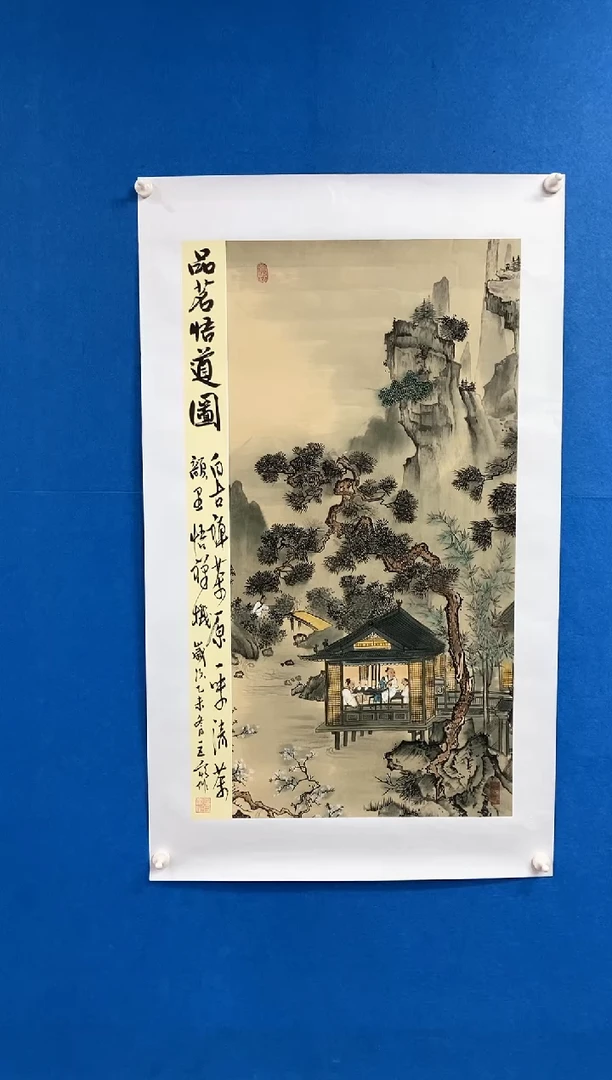 品茗悟道圖
自古禪茶原一味清茶
韻里悟禪機
歲次乙未春月王
作